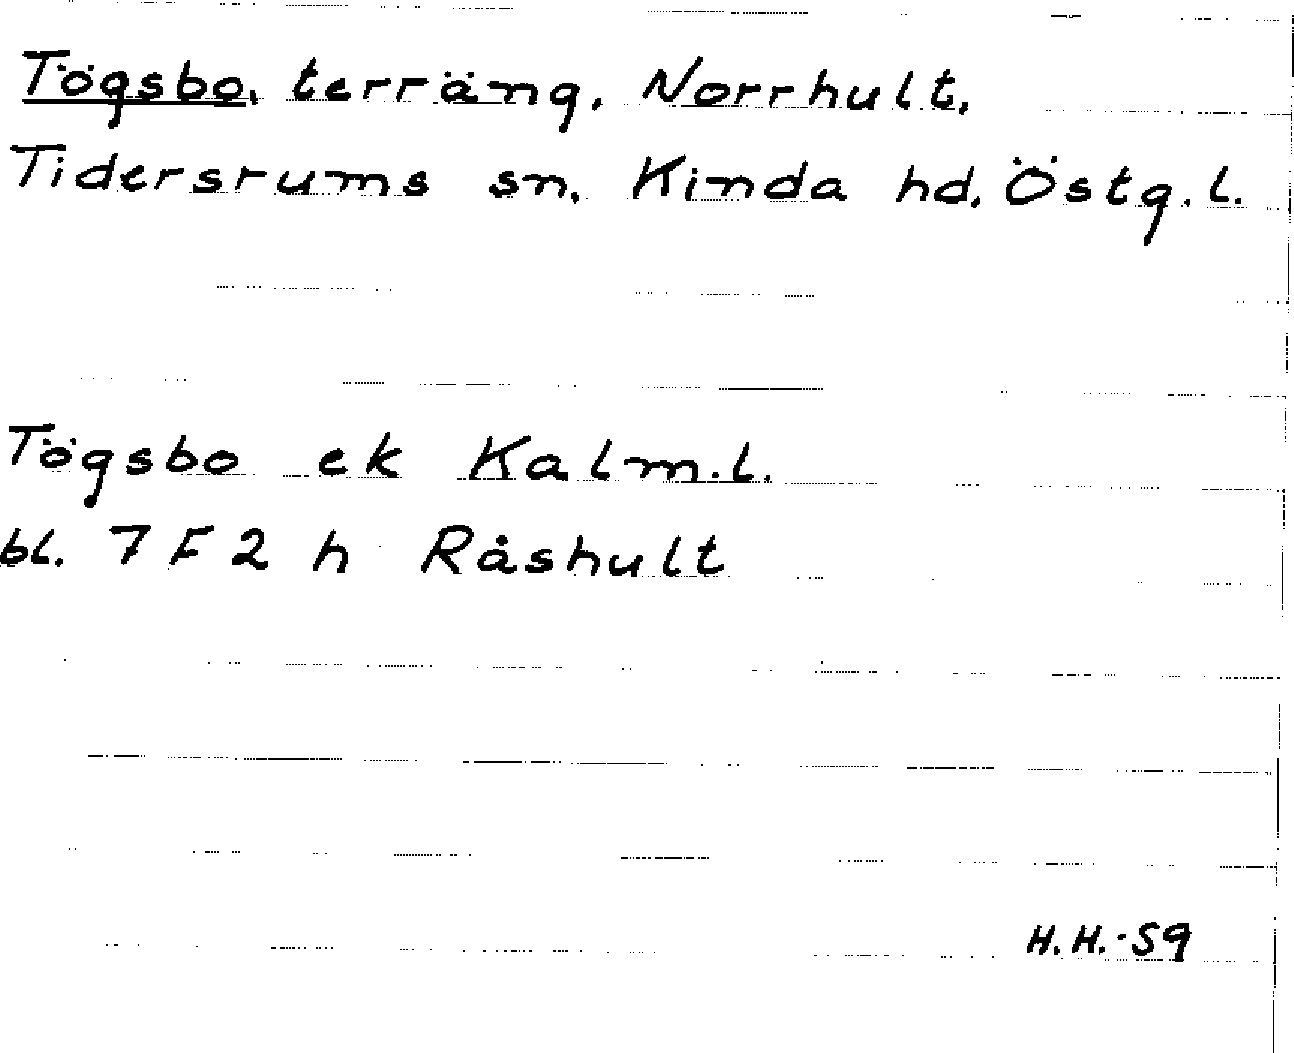 Tögsbo, terräng, Norrhult,
Tidersrums sn, Kinda hd, Östg. l.
Tögsbo ek Kalm. l.
bl. 7 F 2 h Råshult
H.H.-59